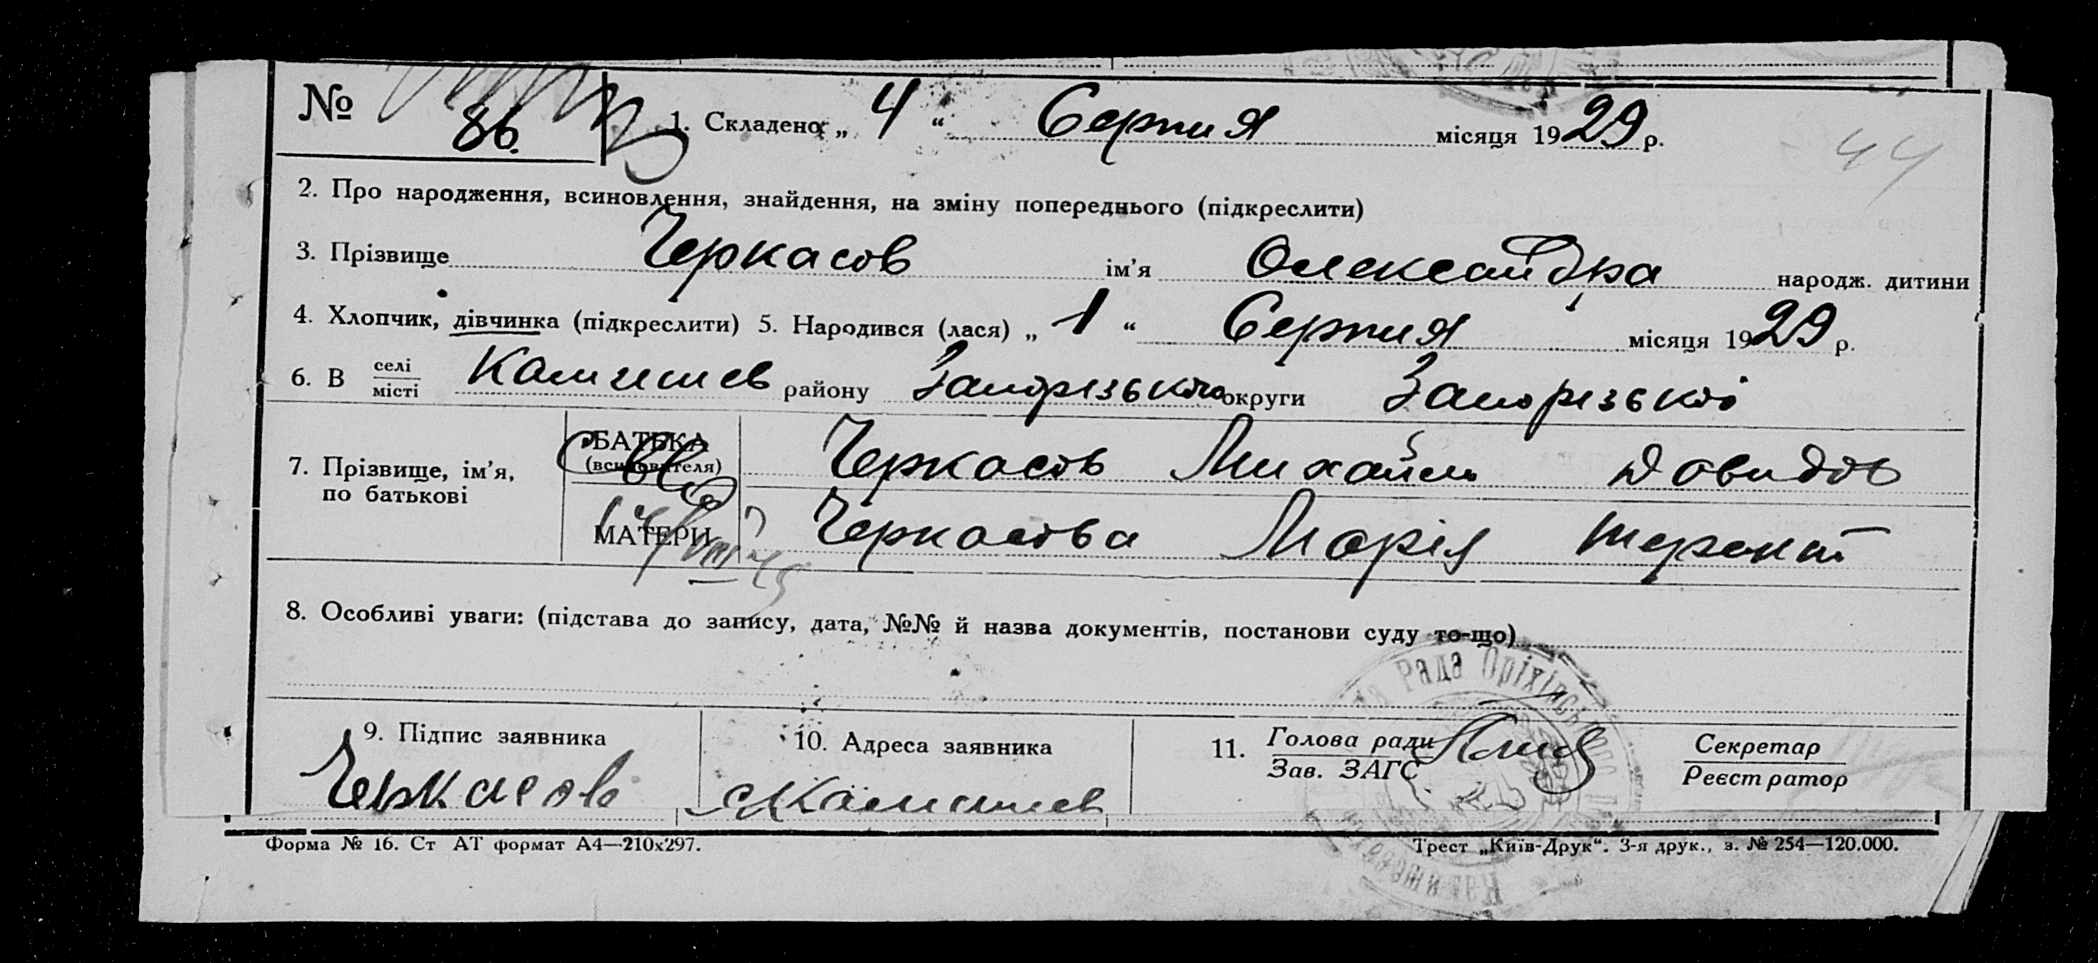 № 86. 1. Складено: „ 4 “ Серпня місяця 1929 р.
44
2. Про народження, всиновлення, знайдення, на зміну попереднього (підкреслити)
3. Прізвище Черкасов ім'я Олександра народж. дитини
4. Хлопчик, дівчинка (підкреслити) 5. Народився (лася) „ 1 “ Серпня місяця 1929 р.
6. В селі місті Камишев району Запорізького округи Запорізької
7. Прізвище, ім'я, по батькові
БАТЬКА (всиновителя) Черкасов Михайло Давидов
МАТЕРИ Черкасова Марія Терент
8. Особливі уваги: (підстава до запису, дата, №№ й назва документів, постанови суду то-що)
9. Підпис заявника 10. Адреса заявника 11. Голова ради Зав. ЗАГС Секретар Реєстратор
Черкасов с Камишев
Рада Оріхівського
Форма № 16. Ст АТ формат А4—210х297. Трест „Київ-Друк“. 3-я друк., з. № 254—120.000.